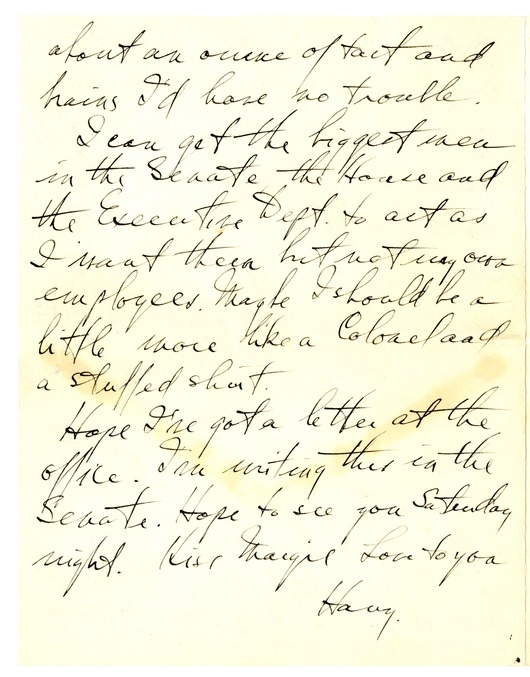 about an ounce of tact and
brains I'd have no trouble.
I can get the biggest men
in the Senate the House and
the Executive Dept. to act as
I want them but not my own
employees. Maybe I should be a
little more like a Colonel and
a stuffed shirt.
Hope I've got a letter at the
office. I'm writing this in the
Senate. Hope to see you Saturday
night. Kiss Margie Love to you
Harry.